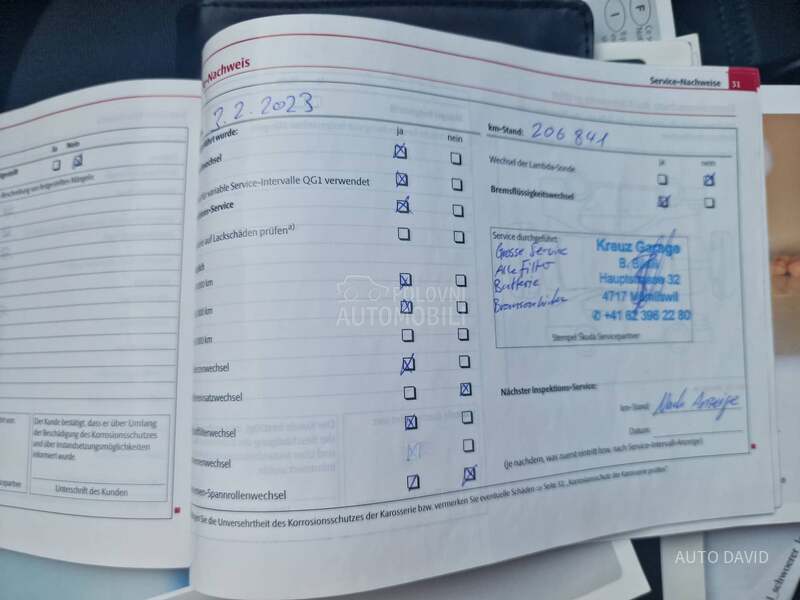 Ja Nein
Der Kunde bestätigt, dass er über Umfang
der Beschädigung des Korrosionsschutzes
und über Instandsetzungsmöglichkeiten
informiert wurde.
Unterschrift des Kunden
-Nachweis
2.2.2023
ja nein
wechsel
für variable Service-Intervalle QG1 verwendet
-Service
auf Lackschäden prüfen a)
km
km
km
wechsel
wechsel
wechsel
-Spannrollenwechsel
Service-Nachweise 31
km-Stand: 206 841
ja nein
Wechsel der Lambda-Sonde
Bremsflüssigkeitswechsel
Service durchgeführt:
Grosse Service
Alle Filter
Batterie
Kreuz Garage
B.
Hauptstrasse 32
4717
✆ +41 62 396 22 80
Stempel Škoda Servicepartner
Nächster Inspektions-Service:
km-Stand: Nach Anzeige
Datum:
(je nachdem, was zuerst eintritt bzw. nach Service-Intervall-Anzeige)
Sie die Unversehrtheit des Korrosionsschutzes der Karosserie bzw. vermerken Sie eventuelle Schäden ⇒ Seite 52, „Korrosionsschutz der Karosserie prüfen“.
POLOVNI
AUTOMOBILI
AUTO DAVID